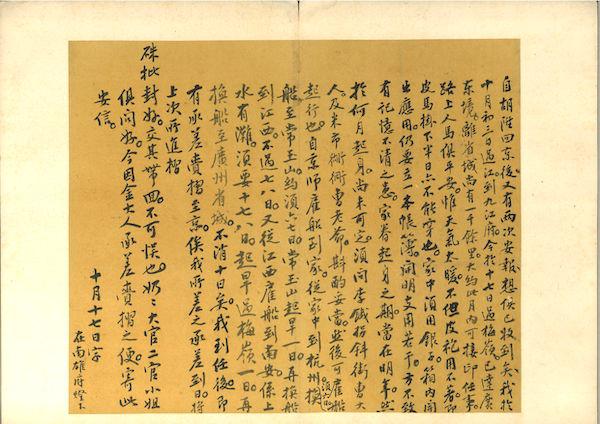 自胡淮回京後又有兩次安報想侯已收到矣我於
十月初三日過江到九江府今於十七日過梅嶺已達廣
東境離省城尚有一千餘里大約此月內可接印任事
路上人馬俱平安惟天氣太暖不但皮袍用不着即
皮馬掛下半日亦不能穿也家中須用銀子箱內開
出應用仍要立一本帳簿開明支用若干方不致
有記憶不清之患家眷起身之期當在明年然
於何月起身尚未可定須同李鐵拐斜街曹大
人及米市衚衕曹老爺斟酌妥當然後可雇船
起行也自京師雇船到家從家中到杭州換
船至常玉山約須六七日常玉山起旱一日再換船
到江西不過七八日又從江西雇船到南安係上
水有灘須要十七八日起旱過梅嶺一日再
換船至廣州省城不消十日矣我到任後即
有承差賫摺至京俟我所差之承差到日將
上次所進摺
硃批封好交其帶回不可悞也奶奶大官二官小姐
俱問好今因金大人承差賫摺之便寄此
安信
十月十七日字
在南雄府燈下